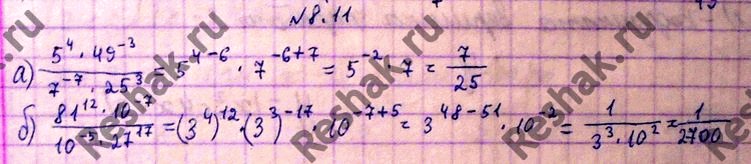 №8.11
а) (5⁴ · 49⁻³)/(7⁻⁷ · 25³) = 5⁴⁻⁶ · 7⁻⁶⁺⁷ = 5⁻² · 7 = 7/25
б) (81¹² · 10⁻⁷)/(10⁻⁵ · 27¹⁷) = (3⁴)¹² · (3³)⁻¹⁷ · 10⁻⁷⁺⁵ = 3⁴⁸⁻⁵¹ · 10⁻² = 1/(3³ · 10²) = 1/2700
Reshak.ru
Reshak.ru
Reshak.ru
Reshak.ru